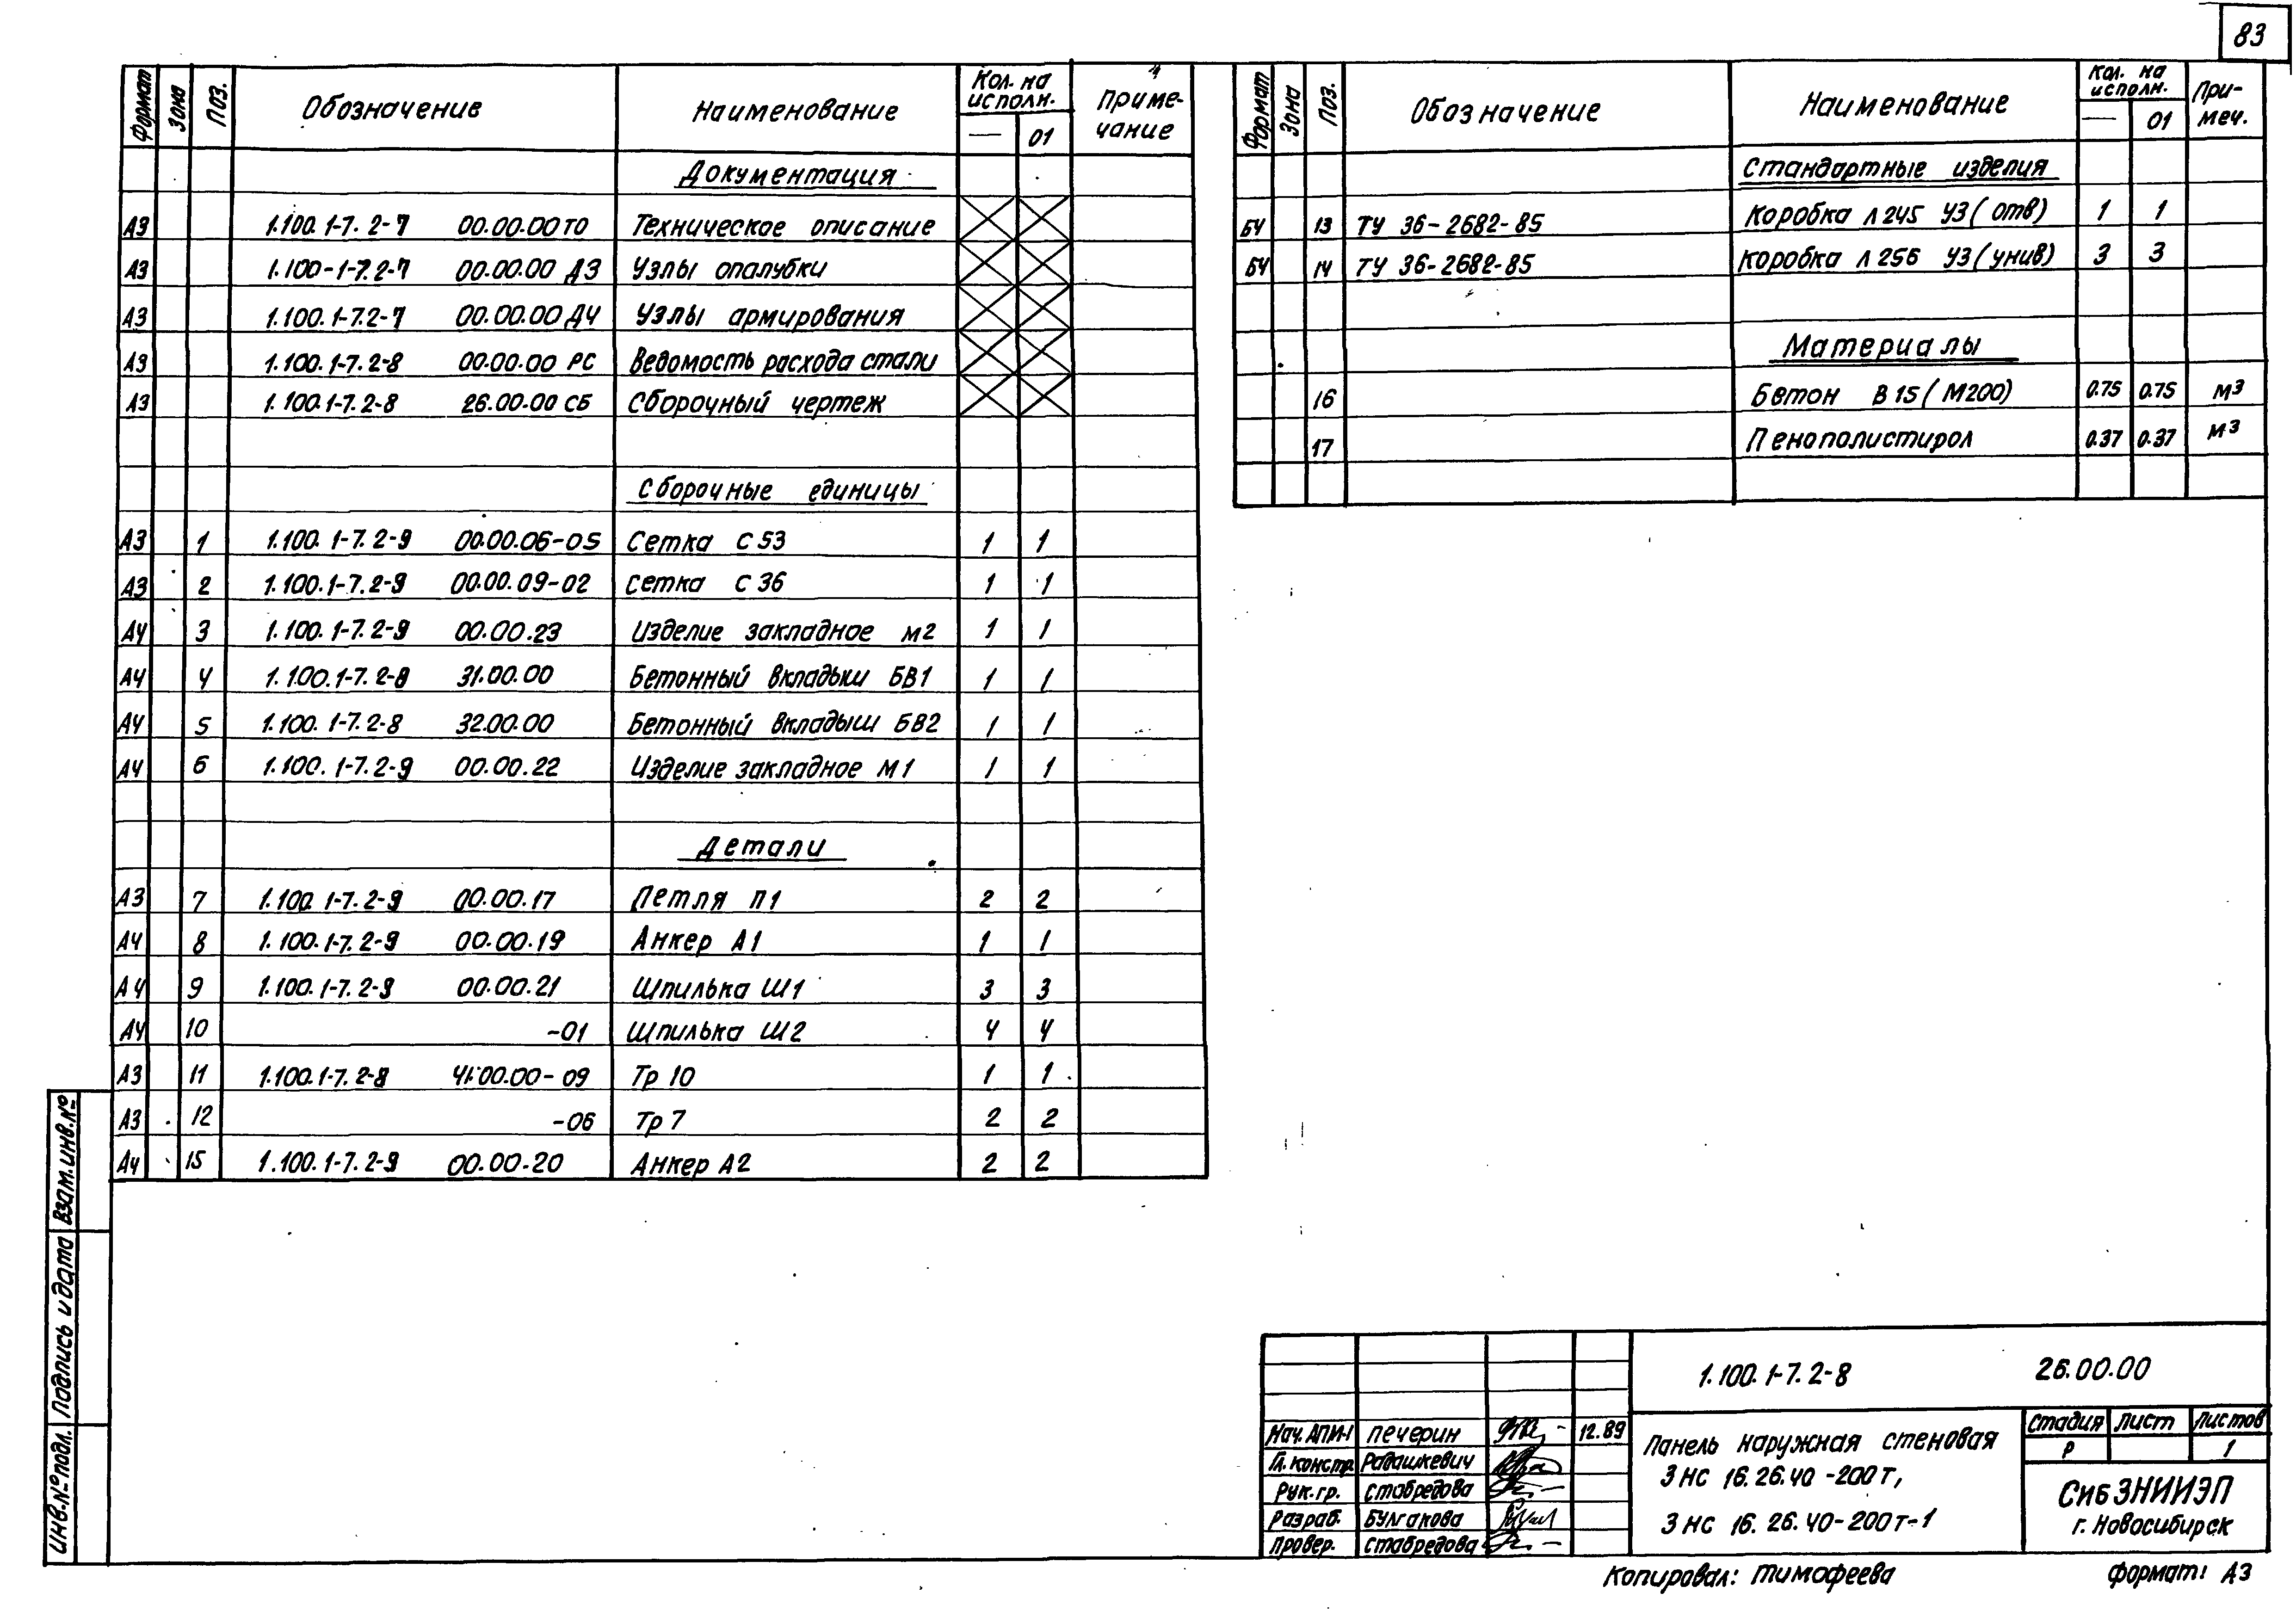 83
Формат Зона Поз. Обозначение Наименование Кол. на исполн. — 01 Приме-чание
Документация
А3 1.100.1-7.2-7 00.00.00 ТО Техническое описание
А3 1.100-1-7.2-7 00.00.00 Д3 Узлы опалубки
А3 1.100.1-7.2-7 00.00.00 Д4 Узлы армирования
А3 1.100.1-7.2-8 00.00.00 РС Ведомость расхода стали
А3 1.100.1-7.2-8 26.00.00 СБ Сборочный чертеж
Сборочные единицы
А3 1 1.100.1-7.2-9 00.00.06-05 Сетка С 53 1 1
А3 2 1.100.1-7.2-9 00.00.09-02 Сетка С 36 1 1
А4 3 1.100.1-7.2-9 00.00.23 Изделие закладное М2 1 1
А4 4 1.100.1-7.2-8 31.00.00 Бетонный вкладыш БВ1 1 1
А4 5 1.100.1-7.2-8 32.00.00 Бетонный вкладыш БВ2 1 1
А4 6 1.100.1-7.2-9 00.00.22 Изделие закладное М1 1 1
Детали
А3 7 1.100.1-7.2-9 00.00.17 Петля П1 2 2
А4 8 1.100.1-7.2-9 00.00.19 Анкер А1 1 1
А4 9 1.100.1-7.2-9 00.00.21 Шпилька Ш1 3 3
А4 10 -01 Шпилька Ш2 4 4
А3 11 1.100.1-7.2-8 41.00.00-09 Тр 10 1 1
А3 12 -06 Тр 7 2 2
А4 15 1.100.1-7.2-9 00.00.20 Анкер А2 2 2
Формат Зона Поз. Обозначение Наименование Кол. на исполн. — 01 При-меч.
Стандартные изделия
БЧ 13 ТУ 36-2682-85 Коробка Л 245 У3 (отв) 1 1
БЧ 14 ТУ 36-2682-85 Коробка Л 256 У3 (унив) 3 3
Материалы
16 Бетон В 15 (М200) 0.75 0.75 м3
17 Пенополистирол 0.37 0.37 м3
Взам.инв.№
Подпись и дата
Инв.№ подл.
1.100.1-7.2-8 26.00.00
Нач. АПИ-1 Печерин 12.89
Гл. констр. Радашкевич
Рук. гр. Ставредова
Разраб. Булгакова
Провер. Ставредова
Панель наружная стеновая
3 НС 16.26.40-200Т,
3 НС 16.26.40-200Т-1
Стадия Лист Листов
Р 1
СибЗНИИЭП
г. Новосибирск
Копировал: Тимофеева Формат: А3